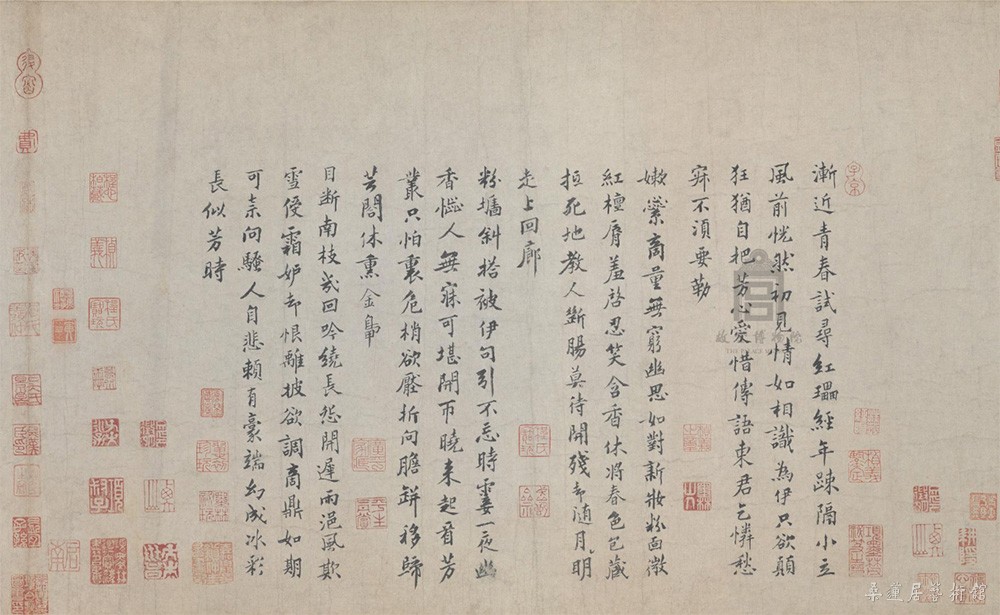 漸近青春試尋紅瓃經年疎隔小立
風前恍然初見情如相識為伊只欲顛
狂猶自把芳心愛惜傳語東君乞憐愁
寂不須要勒
嫩蘂商量無窮幽思如對新妝粉面微
紅檀脣羞啓忍笑含香休將春色包藏
抵死地教人斷腸莫待開殘却隨月明
走上回廊
粉墻斜搭被伊句引不忘時霎一夜幽
香惱人無寐可堪開匝曉來起看芳
叢只怕裏危梢欲壓折向膽缾移歸
芸閣休熏金鴨
目斷南枝幾回吟繞長怨開遲雨浥風欺
雪侵霜妒却恨離披欲調商鼎如期
可柰向騷人自悲賴有豪端幻成冰彩
長似芳時
子京
故宮博物院
桑蓮居藝術館